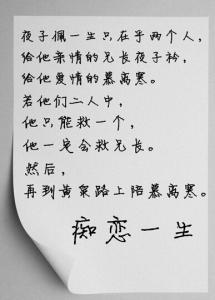 夜子佩一生只在乎两个人，
给他亲情的兄长夜子衿，
给他爱情的慕离寒。
若他们二人中，
他只能救一个，
他一定会救兄长。
然后，
再到黄泉路上陪慕离寒。
痴恋一生